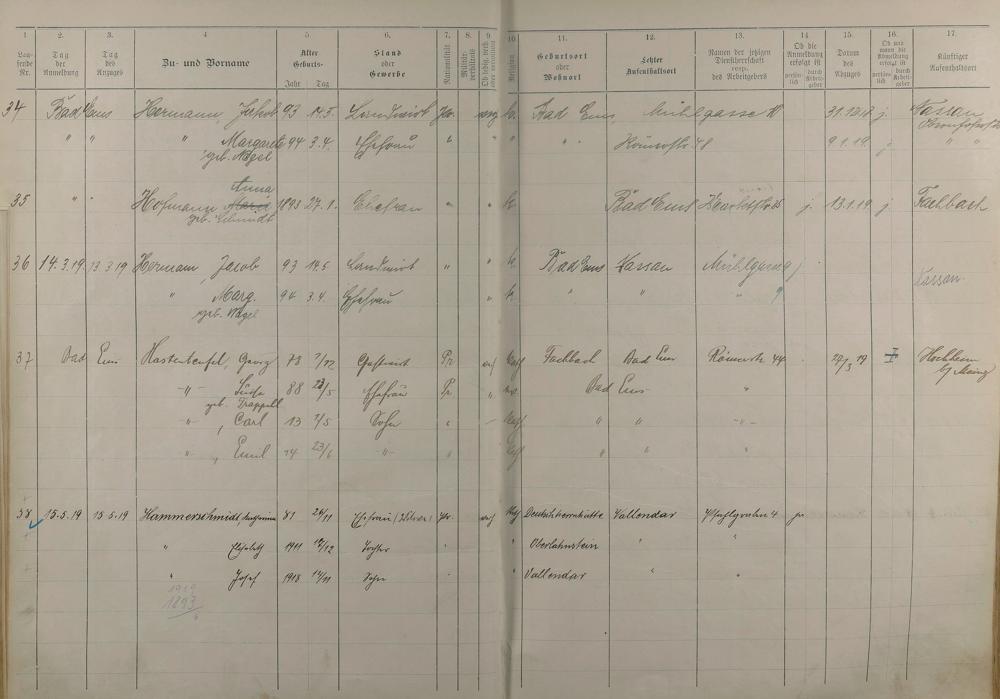 1 2. 3. 4 5. 6. 7. 8. 9 10. 11. 12. 13. 14 15. 16. 17.
Laufende Nr. Tag der Anmeldung Tag des Anzuges Zu- und Vorname Alter Geburts- Jahr Tag Stand oder Gewerbe Nationalität Militärverhältnis Ob ledig, verh. oder verwitwet Religion Geburtsort oder Wohnort Letzter Aufenthaltsort Namen der jetzigen Dienstherrschaft resp. des Arbeitgebers Ob die Anmeldung erfolgt ist persönlich durch Arbeitgeber Datum des Abzuges Ob und wann die Abmeldung erfolgt ist persönlich durch Arbeitgeber Künftiger Aufenthaltsort
34 Bad Ems Hermann, Jakob 93 14.5. Landwirt Bad Ems, Mühlgasse 31.12.18. j. Nassau
" " " Margarete 94 3.4. Ehefrau " " " " Römerstr. 48 9.1.19. j. " "
geb. Nagel
Anna
35 " " Hofmann 1893 27.1. Ehefrau " " k. Bad Ems j. 13.1.19 j. Fachbach
geb. Schmidt
36 14.3.19 13.3.19 Hermann, Jacob 93 14.5 Landwirt " " k. Bad Ems Nassau Mühlgasse 9 j
" Marg. 94 3.4. Ehefrau " k. " " " 9 Nassau
geb. Nagel
37 Bad Ems Hastenteufel, Georg 78 7/12 Gastwirt Pr. Fachbach Bad Ems Römerstr. 44 27/3 19 Hochheim
b/Mainz
-"- 88 23/5 Ehefrau Pr. " Bad Ems "
geb. Trappell
-"- , Carl 13 7/5 Sohn " - " " -"-
-"- , Emil 14 23/6 -"- " " " "
38 15.5.19 15.5.19 Hammerschmidt, 81 26/11 Ehefrau Pr. Vallendar
" Elisabeth 1911 Tochter " " Oberlahnstein " "
" Josef 1918 Sohn " " Vallendar " "
1919
1893